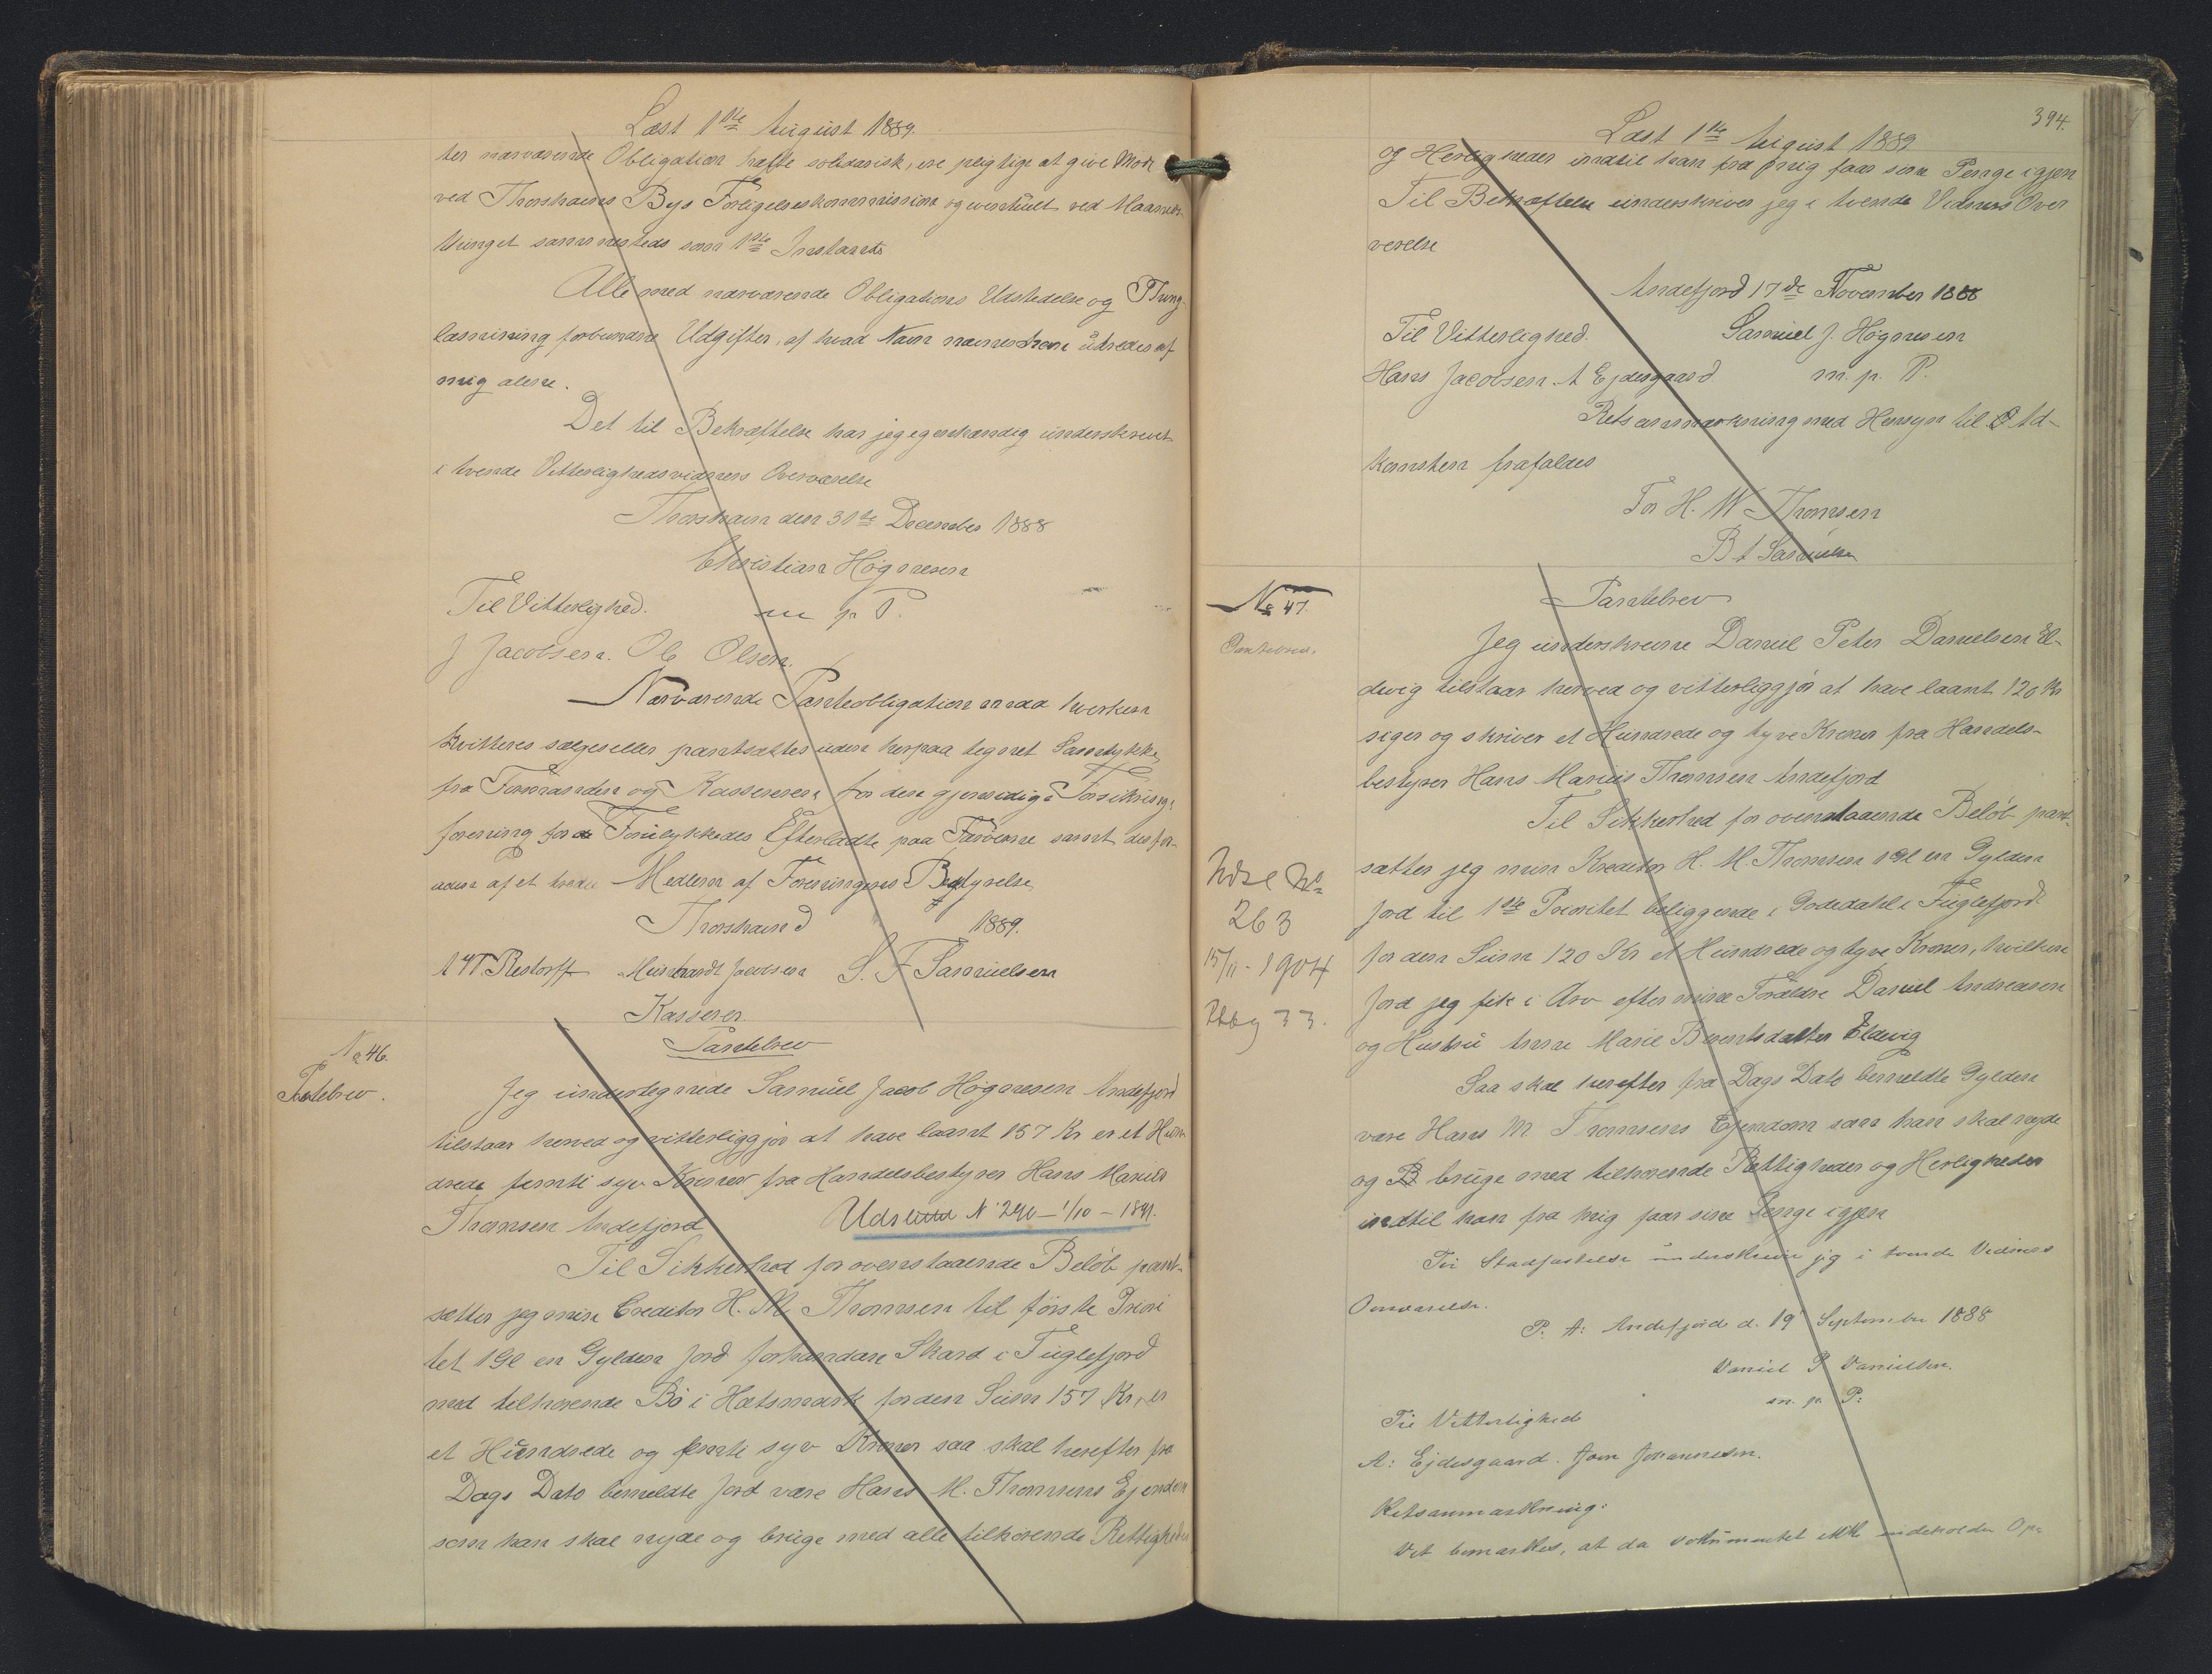 Læst 1ste August 1889.
ter nærværende Obligation hæfte solidarisk, ere pligtige at give Møde
ved Thorshavns Bys Forligelseskommission og eventuelt ved
tinget sammesteds som 1ste Instants
Alle med nærværende Obligations Udstedelse og Thing-
læsnining forbundne Udgifter, af hvad Navn nævnes kan udredes af
mig alene.
Det til Bekræftelse har jeg egenhændig underskrevet
i tvende Vitterlighedsvidners Overværelse
Thorshavn den 31te December 1888
Christian Høgnesen
Til Vitterlighed. m p P.
J Jacobsen. Ole Olsen.
Nærværende Panteobligation maa hverken
kvitteres sælges eller pantsættes uden herpaa tegnet Samtykke
fra Formanden og Kassereren for den gjensidige Forsikrings
forening for de Forulykkedes Efterladte paa Færøerne samt desfor-
uden af et tredie Medlem af Foreningens Bestyrelse
Thorshavn d 1889.
M. C. Restorff Meinhardt Jacobsen S. F Samuelsen
Kasserer.
No 46.
Pantebrev.
Pantebrev
Jeg undertegnede Samuel Jacob Høgnesen Andefjord
tilstaar herved og vitterliggjør at have laant 157 Kr er et Hun
drede femti syv Kroner fra Handelsbestyrer Hans Marius
Thomsen Andefjord
Udslettet N 290 - 1/10 - 1891.
Til Sikkerhed for ovenstaaende Beløb pant-
sætter jeg min Creditor H. M. Thomsen til første Priori
tet 1 Gl en Gylden Jord forhandare Skard i Fuglefjord
med tilhørende Bø i Hatsmark for den Sum 157 Kr, er
et Hundrede og femti syv Kroner saa skal herefter fra
Dags Dato bemeldte Jord være Hans M. Thomsens Ejendom
som han skal nyde og bruge med alle tilhørende Rettigheder
394.
Læst 1ste August 1889
og Herligheder indtil han fra mig faar sine Penge igjen
Til Bekræftelse underskriver jeg i tvende Vidners Over
verelse
Andefjord 17de November 1888
Til Vitterlighed. Samuel J. Høgnesen
Hans Jacobsen A Ejdesgaard m. p. P.
Retsanmærkning med Hensyn til Ad-
komsten frafaldes
For H. M Thomsen
B A Samuelsen
No 47.
Pantebrev.
Pantebrev
Jeg underskrevne Daniel Peter Danielsen El-
duvig tilstaar herved og vitterliggjør at have laant 120 Kr
siger og skriver et Hundrede og tyve Kroner fra Handels-
bestyrer Hans Marius Thomsen Andefjord
Til Sikkerhed for ovenstaaende Beløb pant-
sætter jeg min Kreditor H. M. Thomsen 1 Gl en Gylden
Jord til 1ste Prioritet beliggende i Godedahl i Fuglefjord
for den Sum 120 Kr et Hundrede og tyve Kroner, hvilken
Jord jeg fik i Arv efter mine Forældre Daniel Andreasen
og Hustru Anne Marie Berentsdatter Eldevig
Udsl No
263
15/11 - 1904
33.
Saa skal herefter fra Dags Dato bemeldte Gylden
være Hans M. Thomsens Ejendom som han skal nyde
og bruge med tilhørende Rettigheder og Herligheder
indtil han fra mig faar sine Penge igjen
Til Stadfæstelse underskriver jeg i tvende Vidners
Overværelse.
P. t: Andefjord d. 19 September 1888
Daniel P Danielsen.
m. p. P:
Til Vitterlighed
A: Ejdesgaard. Joen Johannesen.
Retsanmærkning:
Det bemærkes, at da Dokumentet ikke indeholder Op-